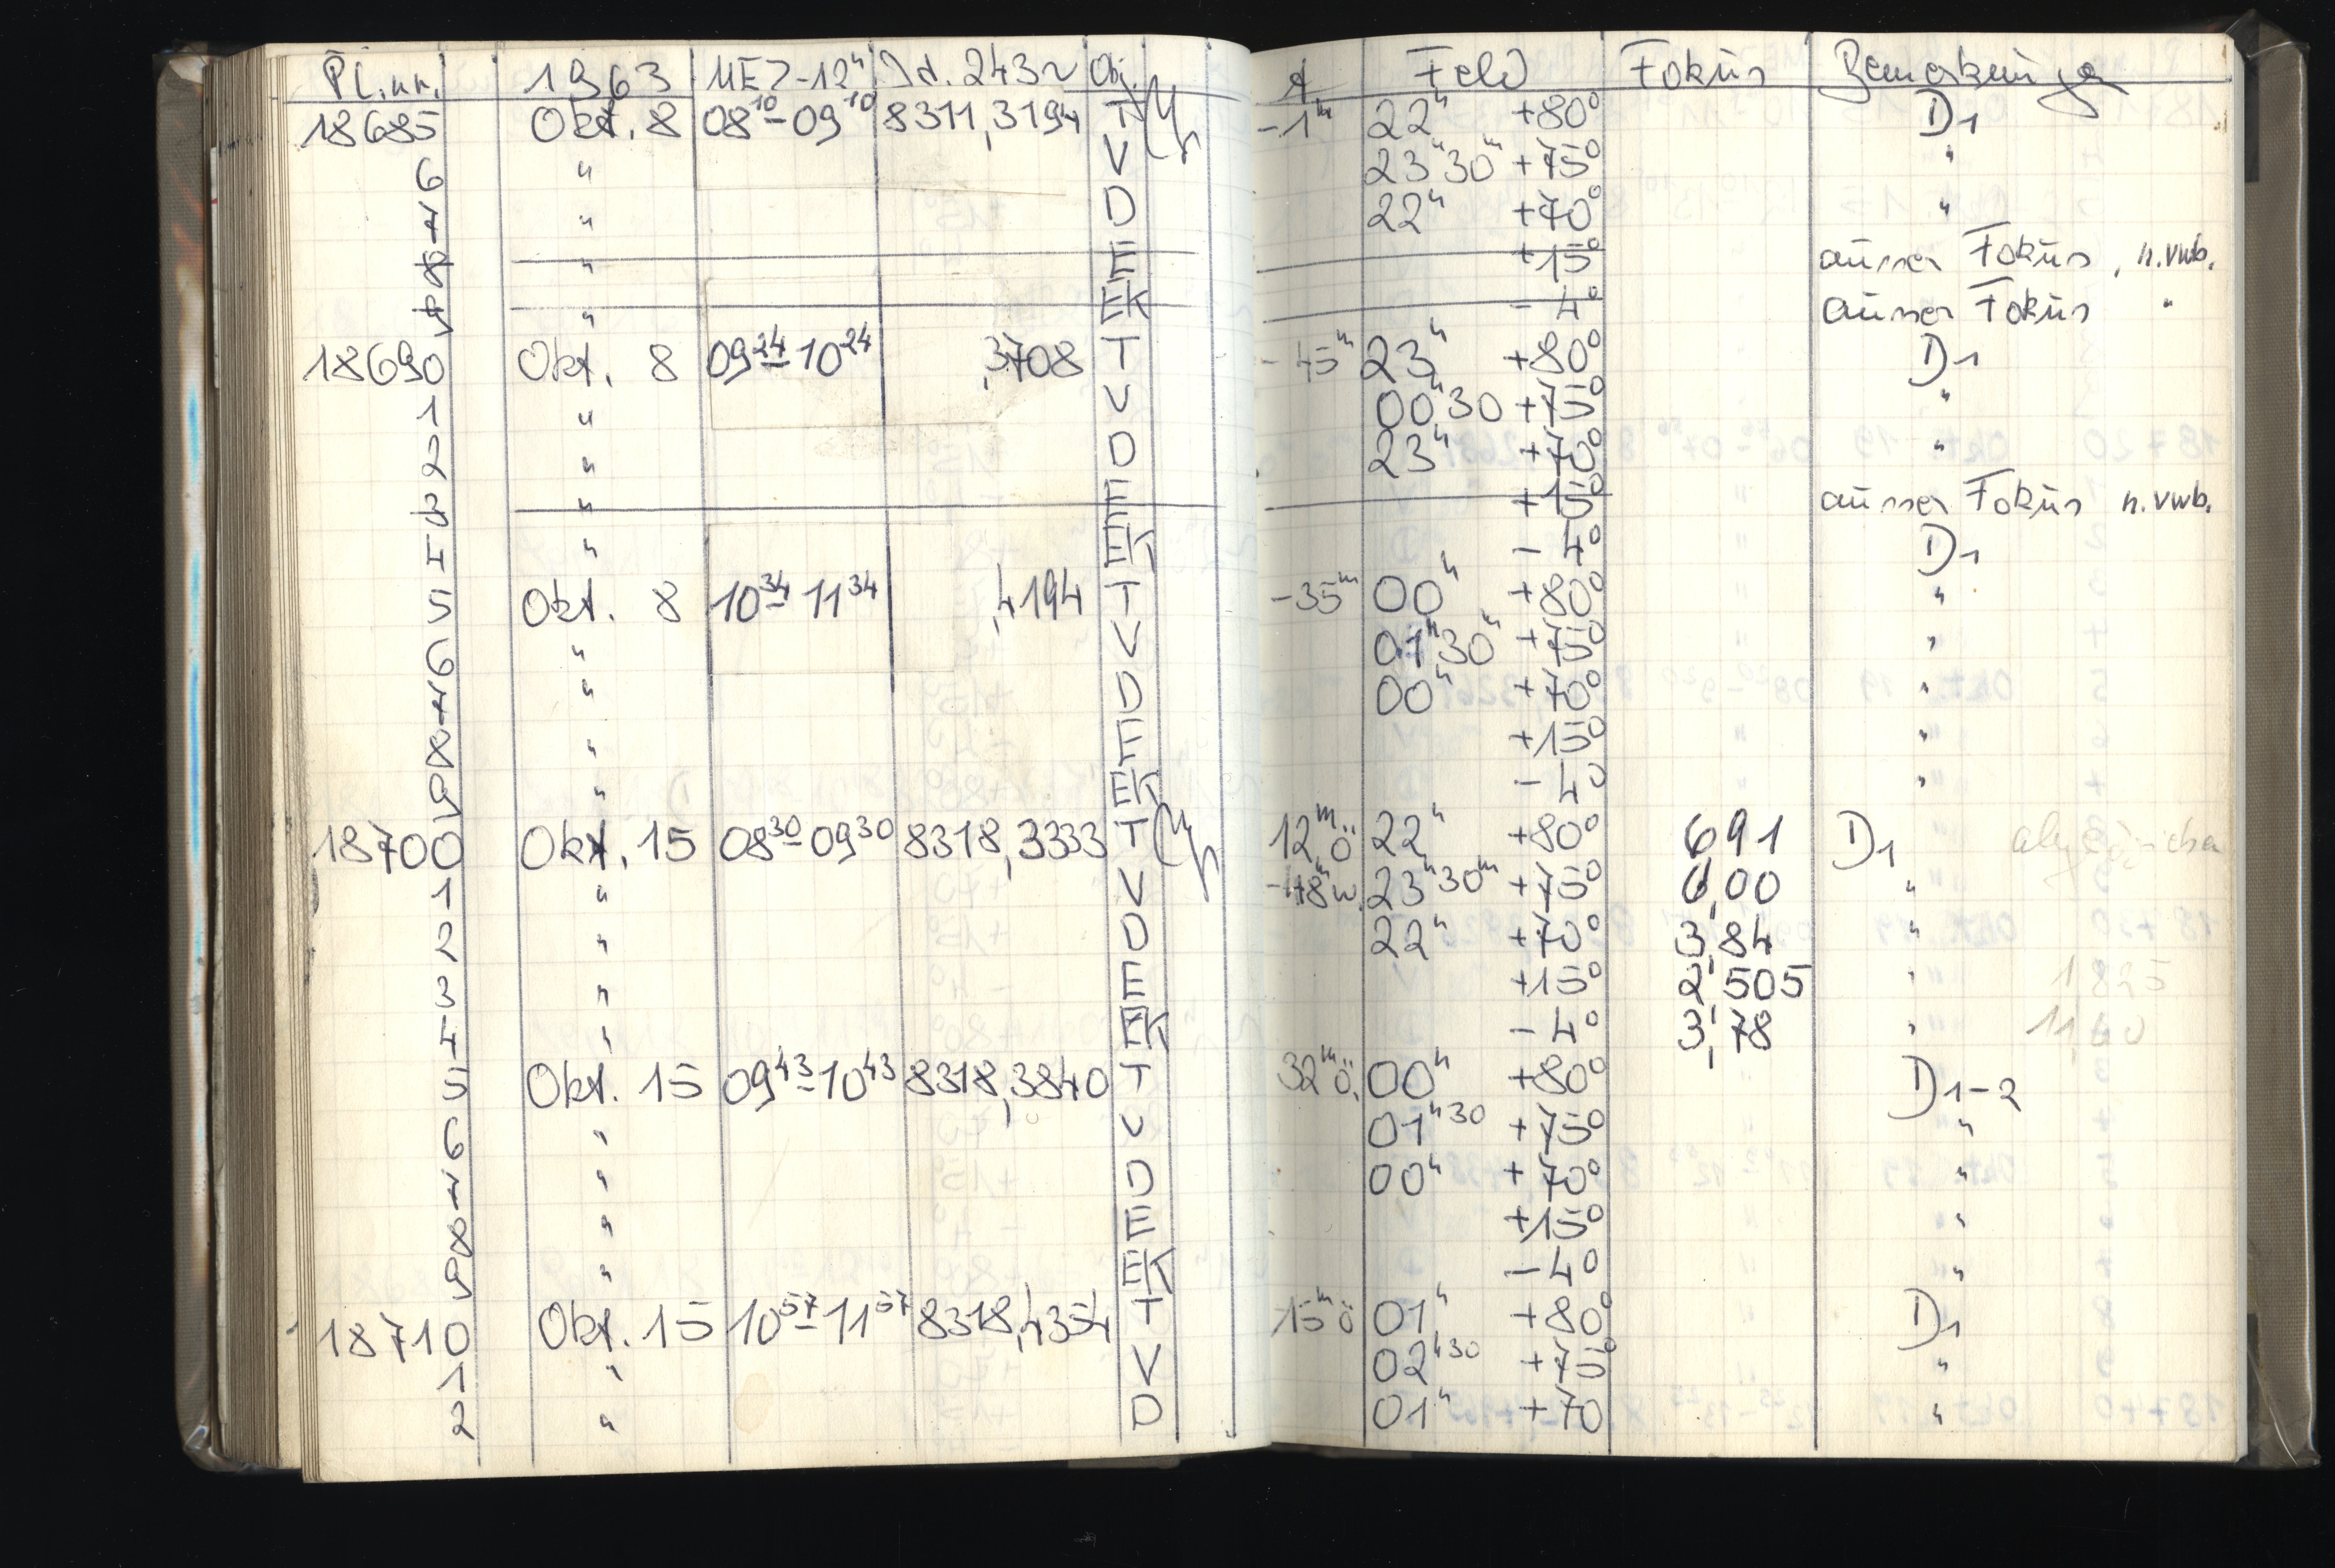 Pl.nr. 1963 MEZ-12ʰ J.d. 243~ Obj. A Feld Fokus Bemerkungen
18685 Okt. 8 08¹⁰-09¹⁰ 8311,3194 T -1ᵐ 22ʰ +80° D1
6 " V 23ʰ30ᵐ +75° "
7 " D 22ʰ +70° "
8 " E +15° ausser Fokus, n.vwb.
9 " - 4° ausser Fokus "
18690 Okt. 8 09²⁴-10²⁴ ,3708 T -45ᵐ 23ʰ +80° D1
1 " V 00ʰ30 +75° "
2 " D 23ʰ +70° "
3 " E +15° ausser Fokus n.vwb.
4 " - 4° D1
5 Okt. 8 10³⁴-11³⁴ ,4194 T -35ᵐ 00ʰ +80° "
6 " V 01ʰ30ᵐ +75° "
7 " D 00ʰ +70° "
8 " E +15° "
9 " - 4° "
18700 Okt. 15 08³⁰-09³⁰ 8318,3333 T 12ᵐö 22ʰ +80° 6 91 D1
1 " V 23ʰ30ᵐ +75° 6,00 "
2 " D 22ʰ +70° 3 84 "
3 " E +15° 2 505 "
4 " - 4° 3 78 "
5 Okt. 15 09⁴³-10⁴³ 8318,3840 T 32ᵐö. 00ʰ +80° D1-2
6 " V 01ʰ30 +75° "
7 " D 00ʰ +70° "
8 " E +15° "
9 " - 4° "
18710 Okt. 15 10⁵⁷-11⁵⁷ 8318,4354 T 15ᵐö 01ʰ +80° D1
1 " V 02ʰ30 +75° "
2 " D 01ʰ +70 "